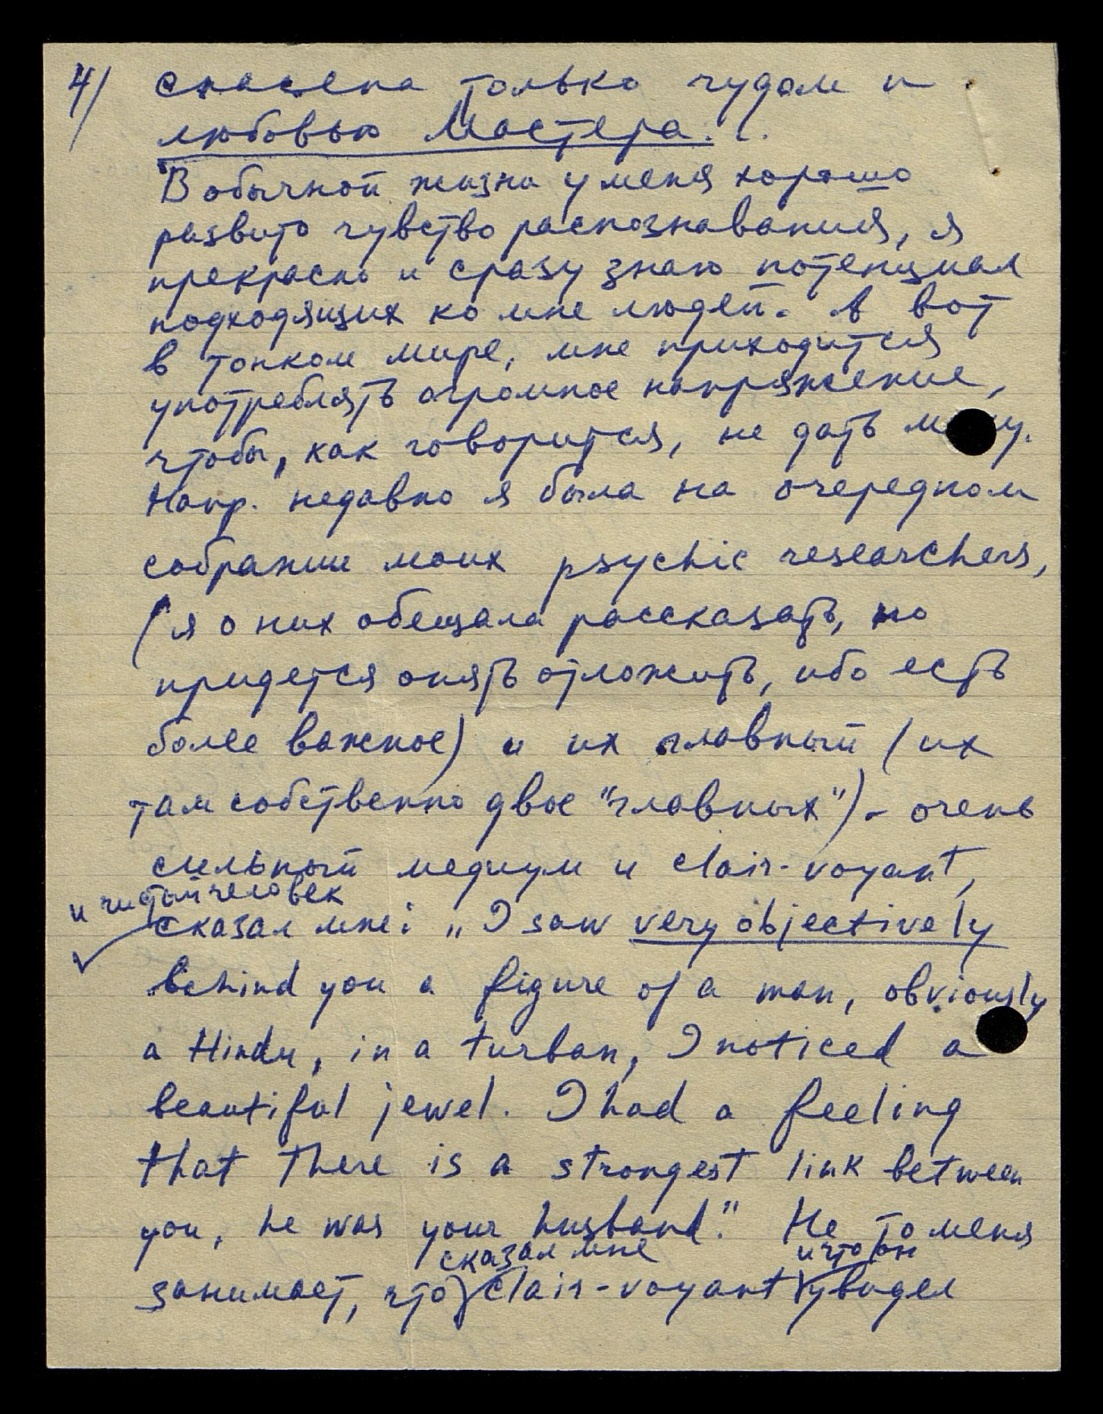 4/ спасена только чудом и
любовью Мастера. . .
В обычной жизни у меня хорошо
развито чувство распознавания, я
прекрасно и сразу знаю потенциал
подходящих ко мне людей. А вот
в тонком мире, мне приходится
употреблять огромное напряжение,
чтобы, как говорится, не дать
Напр. недавно я была на очередном
собрании моих psychic researchers,
(я о них обещала рассказать, но
придется опять отложить, ибо есть
более важное) и их главный (их
там собственно двое "главных") - очень
сильный медиум и clair-voyant,
и чистый человек
сказал мне: „I saw very objectively
behind you a figure of a man, obviously
a Hindu, in a turban, I noticed a
beautiful jewel. I had a feeling
that there is a strongest link between
you, he was your husband." Не то меня
сказал мне и что он
занимает, что clair-voyant увидел